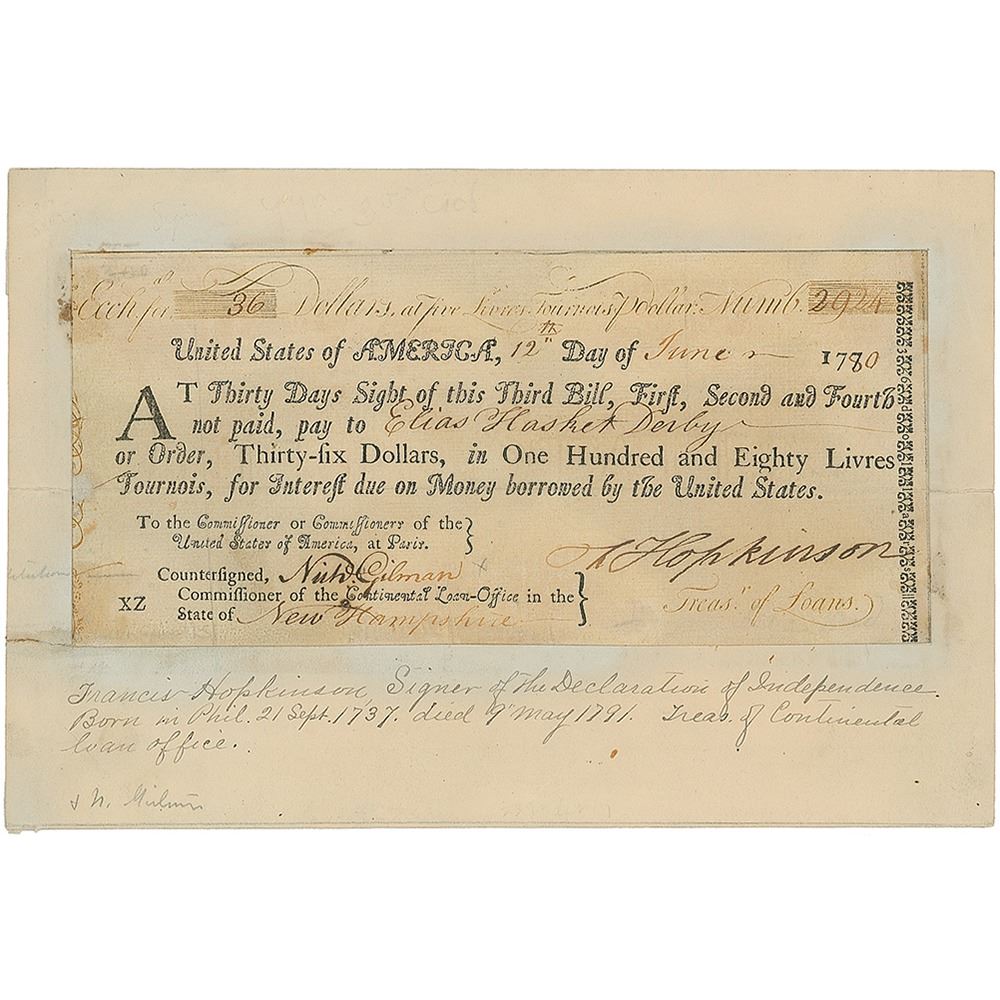 Exch. for 36 Dollars, at five Livres Tournois ℘ dollar. Numb. 2924
United States of AMERICA, 12th Day of June 1780
AT Thirty Days Sight of this Third Bill, First, Second and Fourth
not paid, pay to Elias Hasket Derby
or Order, Thirty-six Dollars, in One Hundred and Eighty Livres
Tournois, for Interest due on Money borrowed by the United States.
To the Commissioner or Commissioners of the
United States of America, at Paris.
F Hopkinson
Countersigned, Nichs. Gilman
Commissioner of the Continental Loan-Office in the
State of New Hampshire
XZ
Treasr. of Loans.
Francis Hopkinson, Signer of the Declaration of Independence.
Born in Phil. 21 Sept. 1737. died 9" May 1791. Treas. of Continental
loan office.
& N. Gilman